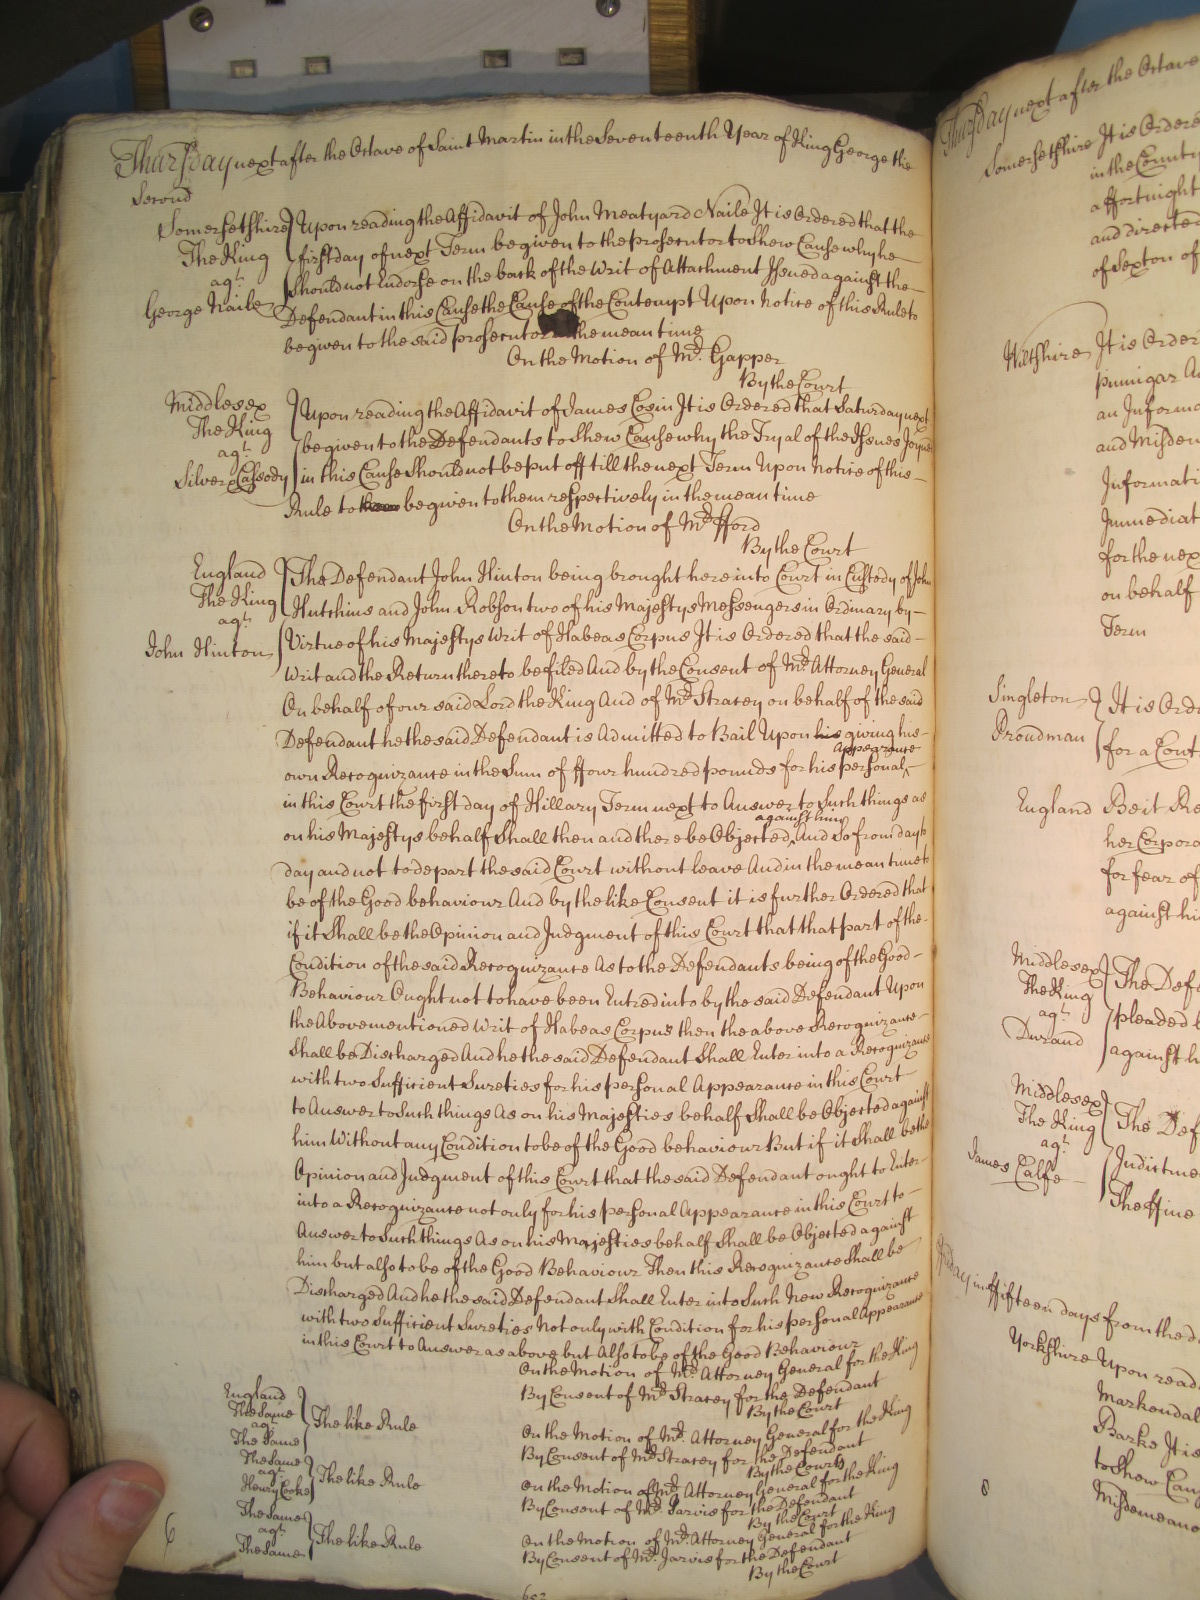 Thursday next after the Octave of Saint Martin in the Seventeenth Year of King George the
Second
Somersetshire Upon reading the Affidavit of John Meatyard Naile It is Ordered that the
The King first day of next Term be given to the prosecutor to Shew Cause why he
agt. Should not Endorse on the back of the Writ of Attachment Issued against the
George Naile Defendant in this Cause the Cause of the Contempt Upon Notice of this Rule to
be given to the said prosecutor the mean time
On the Motion of Mr. Gapper
By the Court
Middlesex Upon reading the Affidavit of James Cosin It is Ordered that Saturday next
The King be given to the Defendants to Shew Cause why the Tryal of the Issues Joyned
agt.
Silver & Cassody in this Cause Should not be put off till the next Term Upon Notice of this
Rule to them be given to them respectively in the mean time
On the Motion of Mr. fford
By the Court
England The Defendant John Hinton being brought here into Court in Custody of John
The King Hutchins and John Robson two of his Majestys Messengers in Ordinary by
agt.
John Hinton Virtue of his Majestys Writ of Habeas Corpus It is Ordered that the said
Writ and the Return thereto be filed And by the Consent of Mr. Attorney General
On behalf of our said Lord the King And of Mr. Stracey on behalf of the said
Defendant he the said Defendant is Admitted to Bail Upon his giving his
own Recognizance in the Sum of ffour hundred pounds for his personal Appearance
in this Court the first day of Hillary Term next to Answer to Such things as
on his Majestys behalf Shall then and there be Objected against him And So from day to
day and not to depart the said Court without leave And in the mean time to
be of the Good behaviour And by the like Consent it is further Ordered that
if it Shall be the Opinion and Judgment of this Court that that part of the
Condition of the said Recognizance As to the Defendants being of the Good
Behaviour Ought not to have been Entred into by the said Defendant Upon
the Abovementioned Writ of Habeas Corpus then the above Recognizance
Shall be Discharged And he the said Defendant Shall Enter into a Recognizance
with two Sufficient Sureties for his personal Appearance in this Court
to Answer to Such things As on his Majesties behalf Shall be Objected against
him Without any Condition to be of the Good behaviour But if it Shall be the
Opinion and Judgment of this Court that the said Defendant ought to Enter
into a Recognizance not only for his personal Appearance in this Court to
Answer to Such things As on his Majesties behalf Shall be Objected against
him but also to be of the Good Behaviour Then this Recognizance Shall be
Discharged And he the said Defendant Shall Enter into Such New Recognizance
with two Sufficient Sureties Not only with Condition for his personal Appearance
in this Court to Answer as above but Also to be of the Good Behaviour
On the Motion of Mr. Attorney General for the King
By Consent of Mr. Stracey for the Defendant
By the Court
England
The Same
agt. The like Rule
The Same
On the Motion of Mr. Attorney General for the King
By Consent of Mr. Stracey for the Defendant
By the Court
The Same
agt. The like Rule
Henry Cooke
On the Motion of Mr. Attorney General for the King
By Consent of Mr. Jarvis for the Defendant
By the Court
The Same
agt. The like Rule
The Same
On the Motion of Mr. Attorney General for the King
By Consent of Mr. Jarvis for the Defendant
By the Court
6
Thursday next after the Octave
Somersetshire It is Ordered
in the County
a ffortnight
and directed
of Sexton of
Wiltshire It is Order
an Informa
and Misdem
Informati
Immediat
for the nex
on behalf
Term
Singleton It is Orde
Proudman for a Cont
England Be it Re
her Corpora
for fear of
against hi
Middlesex The Defe
The King
agt. pleaded
Durand against h
Middlesex
The King The Def
agt.
James Calfe Indictme
The ffine
Friday in ffifteen days from the d
Yorkshire Upon read
Markendal
Barke It is
to Shew Cau
Misdemeano
8